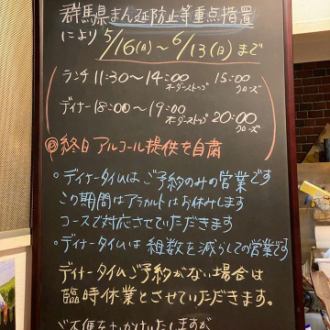 群馬県まん延防止等重点措置
により 5/16(日)〜6/13(日)まで
ランチ 11:30〜14:00 オーダーストップ 15:00 クローズ
ディナー 18:00〜19:00 オーダーストップ 20:00 クローズ
終日 アルコール提供を自粛
・ディナータイムはご予約のみの営業です
この期間はアラカルトはお休みします
コースで対応させていただきます
・ディナータイムは組数を減らしての営業です
ディナータイムご予約がない場合は
臨時休業とさせていただきます。
ご不便をおかけいたしますが